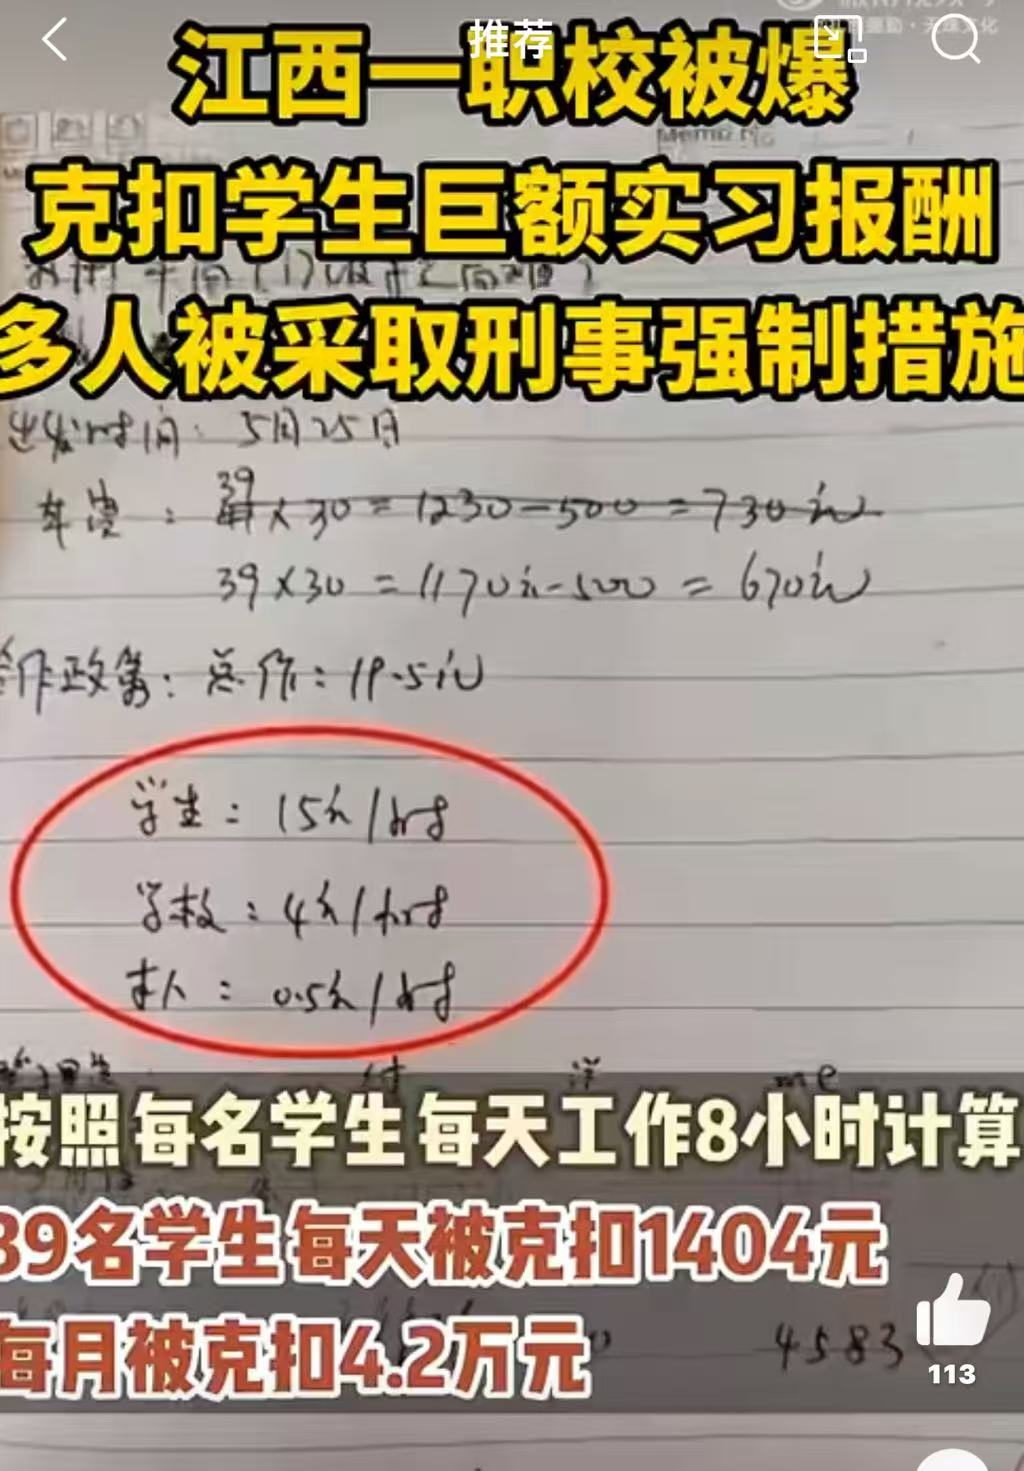 推荐
江西一职校被爆
克扣学生巨额实习报酬
多人被采取刑事强制措施
出发时间：5月25日
车费：39×30=1230-500=730元
39×30=1170元-500=670元
合作政策：总价：19.5元
学生：15元/时
学校：4元/时
本人：0.5元/时
按照每名学生每天工作8小时计算
39名学生每天被克扣1404元
每月被克扣4.2万元
4583
113